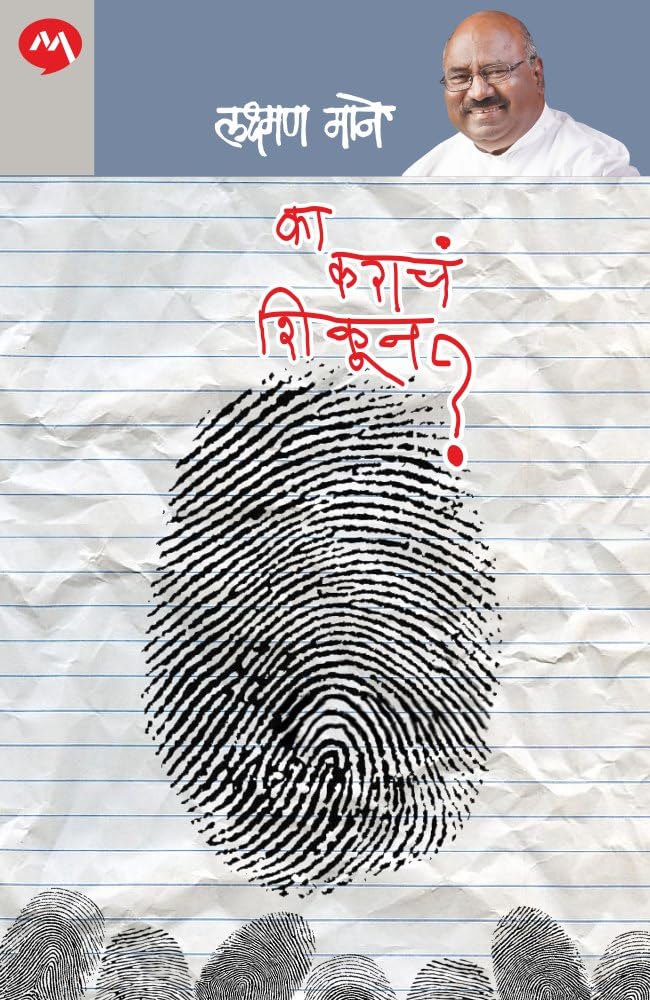 लक्ष्मण माने
का
कराचं
शिकून?